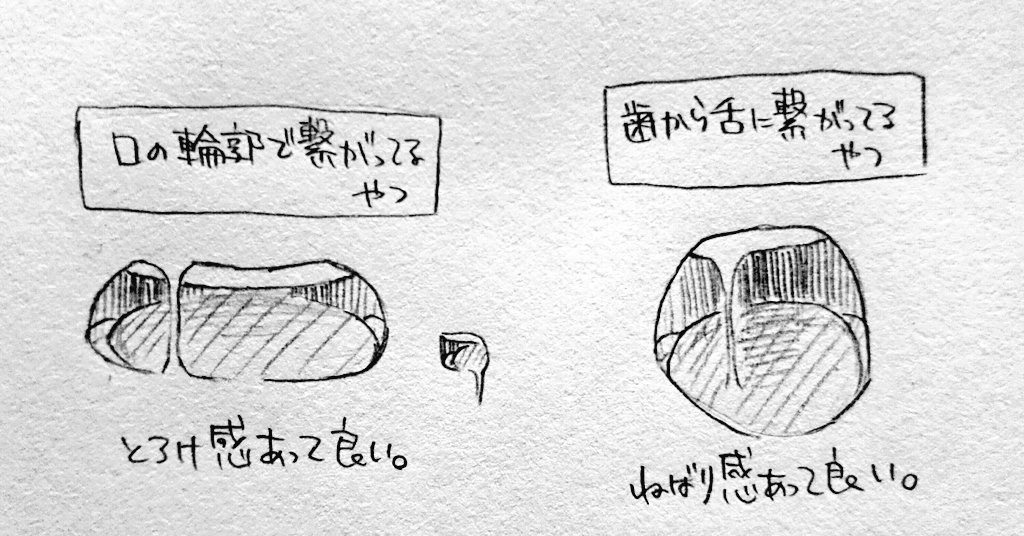 口の輪郭で繋がってる
やつ
とろけ感あって良い。
歯から舌に繋がってる
やつ
ねばり感あって良い。